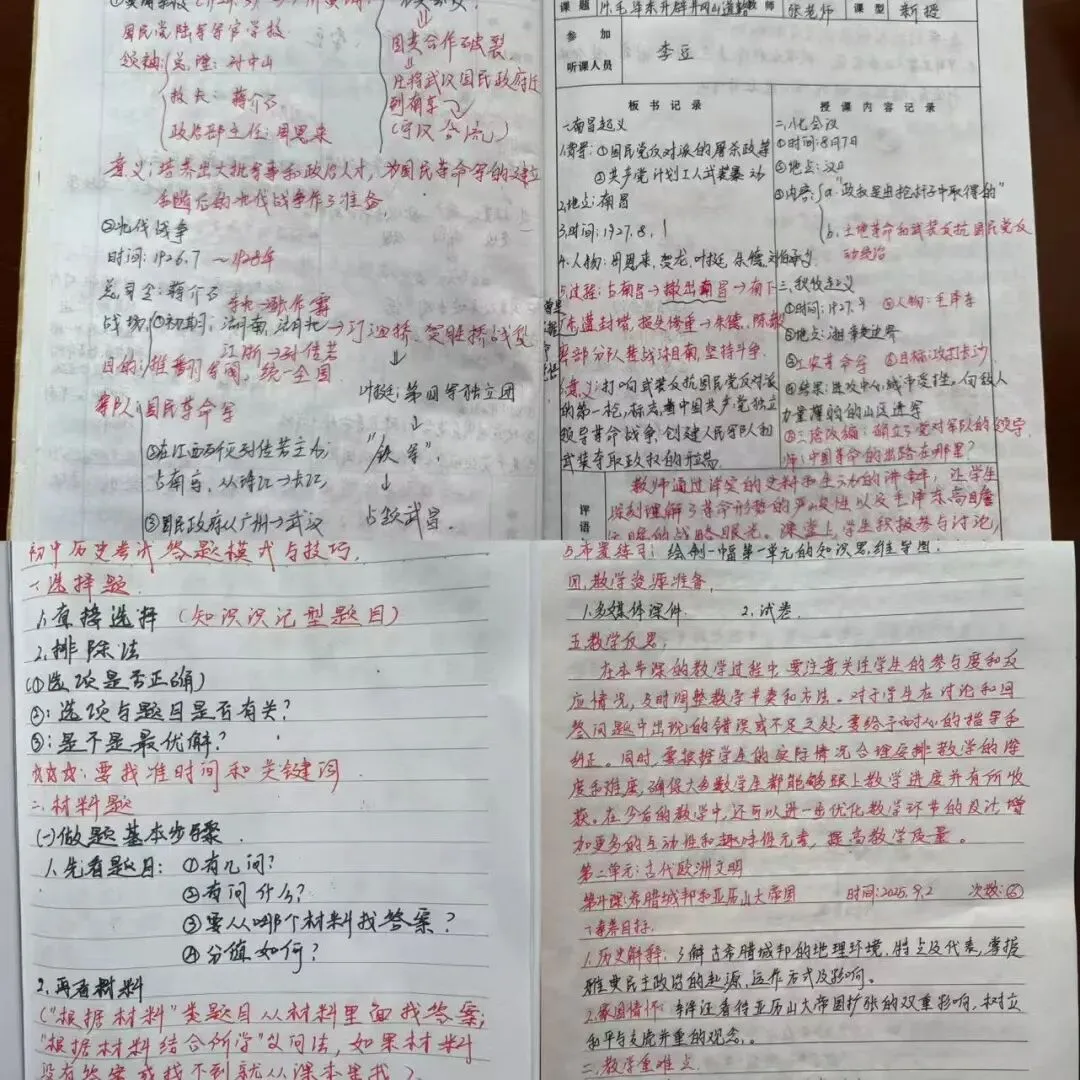 国民党陆军军官学校
领袖 总理：孙中山
校长：蒋介石
政治部主任：周恩来
意义：培养出大批军事和政治人才，为国民革命军的建立
和随后的北伐战争作了准备
国共合作破裂
将武汉国民政府迁
到南京
(宁汉合流)
②北伐战争
时间：1926.7 ～1928年
总司令：蒋介石
战场①初期：湖南、湖北→汀泗桥、贺胜桥战役
江浙→孙传芳
目的：推翻军阀，统一全国
军队：国民革命军
叶挺：第四军独立团
"铁军"
占领武昌.
②在江西歼灭孙传芳主力；
占南京，从珠江→长江
③国民政府从广州→武汉
课题 毛泽东开辟井冈山道路 教师 张老师 课型 新授
参加
听课人员
李豆
板书记录
一.南昌起义
1.背景：①国民党反对派的屠杀政策
②共产党计划工人武装暴动
2.地点：南昌
3.时间：1927.8.1
4.人物：周恩来、贺龙、叶挺、朱德、刘伯承
5.过程：占南昌→撤出南昌→南下
途遭封堵，损失惨重→朱德、陈毅
率部分队转战湖南，坚持斗争.
意义：打响武装反抗国民党反对派
的第一枪，标志着中国共产党独立
领导革命战争、创建人民军队和
武装夺取政权的开端.
授课内容记录
二、八七会议
①时间：8月7日
②地点：汉口
③内容：a."政权是由枪杆子中取得的"
b.土地革命和武装反抗国民党反
动统治
三.秋收起义
①时间：1927.9 ②人物：毛泽东
③地点：湘赣边界
③工农革命军 ④目标：攻打长沙
④结果：进攻中心城市受挫，向敌人
力量薄弱的山区进军
⑤三湾改编：确立了党对军队的领导
师：中国革命的出路在哪里？
评语
教师通过详实的史料和生动的讲解，让学生
深刻理解了革命形势的严峻性以及毛泽东高瞻
远瞩的战略眼光。课堂上，学生积极参与讨论，
初中历史考试答题模式与技巧.
一.选择题.
1.直接选择（知识识记型题目）
2.排除法
(①选项是否正确)
②：选项与题目是否有关？
③：是不是最优解？
☆☆☆：要找准时间和关键词.
二.材料题
(一)做题基本步骤.
1.先看题目：①有几问？
②有问什么？
③要从哪个材料找答案？
④分值如何？
2.再看材料
("根据材料"类题目从材料里面找答案；
"根据材料结合所学"义问法，如果材料
没有答案或找不到就从课本里找).
5.布置练习：绘制一幅第一单元的知识思维导图.
四.教学资源准备.
1.多媒体课件. 2.试卷.
五.教学反思；
在本节课的教学过程中，要注意关注学生的参与度和反
应情况，及时调整教学节奏和方法。对于学生在讨论和回
答问题中出现的错误或不足之处，要给予耐心的指导和
纠正。同时，要根据学生的实际情况合理安排教学的深
度和难度，确保大多数学生都能够跟上教学进度并有所收
获。在今后的教学中，还可以进一步优化教学环节的设计，增
加更多的互动性和趣味性元素，提高教学质量。
第二单元：古代欧洲文明
第4课：希腊城邦和亚历山大帝国 时间：2025.9.2 次数：⑥
一.素养目标.
1.历史解释：了解古希腊城邦的地理环境、特点及代表，掌握
雅典民主政治的起源、运作方式及影响。
2.家国情怀：辩证看待亚历山大帝国扩张的双重影响，树立
和平与交流并重的观念。
二.教学重难点.